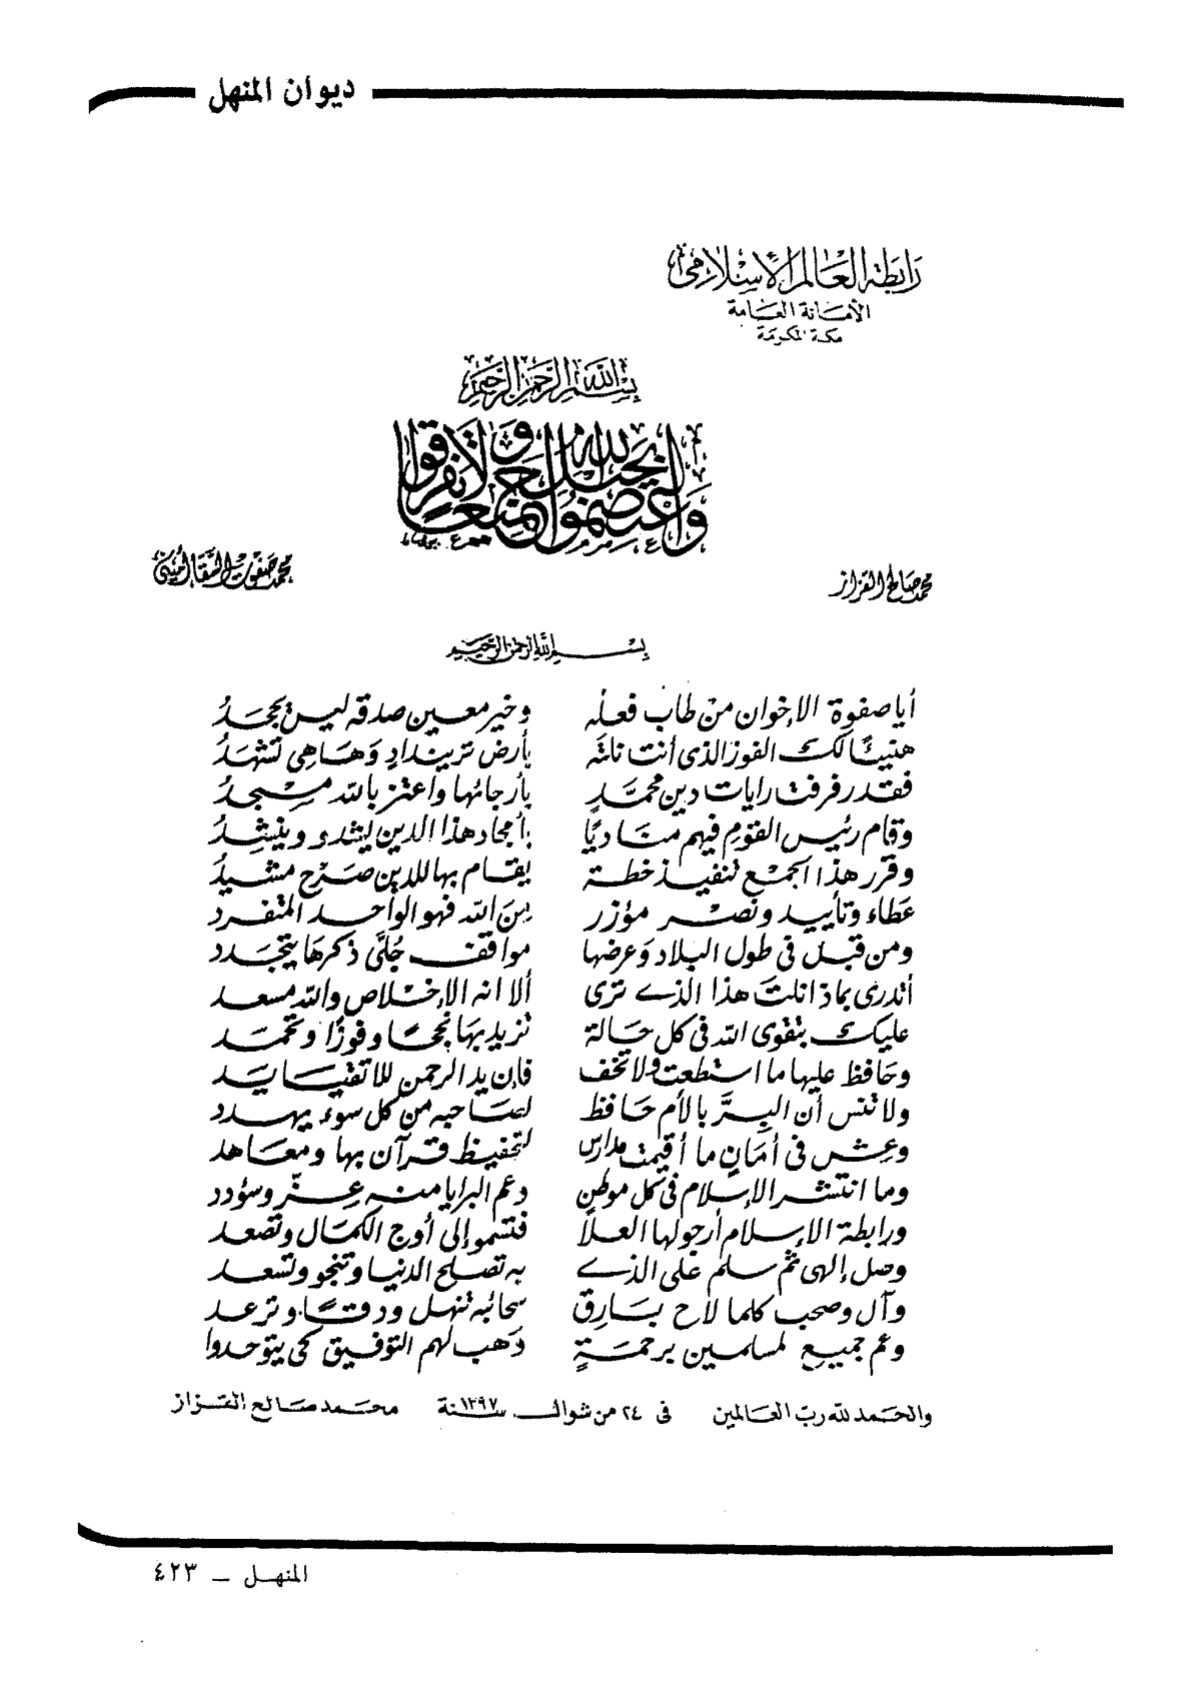 ديوان المنهل
رابطة العالم الإسلامي
الأمانة العامة
مكة المكرمة
بسم الله الرحمن الرحيم
واعتصموا بحبل الله جميعا ولا تفرقوا
محمد صالح القزاز
محمد صفوت السقا أميني
بسم الله الرحمن الرحيم
أيا صفوة الإخوان من طاب فعله وخير معين صدقه ليس يجحدُ
هنيئًا لك الفوز الذى أنت نلته بأرض ترينداد وَهَا هِى تشهَدُ
فقد رفرفت رايات دين محمَّدٍ بأرجائها واعتز بالله مسْجدُ
وقام رئيس القوم فيهم مناديًا بأمجاد هذا الدين يشدو وينشِدُ
وقرر هذا الجمْع تنفيذ خطة يقام بها للدين صَرْح مشيدُ
عَطاء وتأييد ونصْر مؤزر مِنَ الله فهو الواحد المتفرد
ومن قبل فى طول البلاد وَعرضها مواقف جُلَّى ذكرهَا يتجدد
أتدرى بماذا نلتَ هذا الذى ترى ألا انه الإخْلاص والله مسعد
عليك بتقوى الله فى كل حَالة تزيد بهَا نجحًا وفوزًا وتحمَد
وحَافظ عليها ما استطعت ولا تخف فإن يد الرحمن للاتقيا يد
ولا تنس أن البِرَّ بالأم حَافظ لصَاحبه من كل سوء يهدد
وعِش فى أمَانٍ ما أقيمت مدارس لتحفيظ قرآن بها ومعَاهد
وما انتشر الإسلام فى كل موطن وعم البرايا منه عِزّ وسؤدد
ورابطة الإسلام أرجو لها العلَا فتسمو إلى أوج الكمَال وتصعد
وصل إلهى ثم سلم على الذى به تصلح الدنيا وتنجو وتسعد
وآل وصحب كلما لاح بَارِق سحائبه تنهل ودقًا وترعد
وعم جميع لمسلمين برحمَةٍ وَهب لهم التوفيق كى يتوحدوا
والحمد لله ربّ العالمين فى ٢٤ من شوال سنة ١٣٩٧ محمد صالح القزاز
المنهل – ٤٢٣